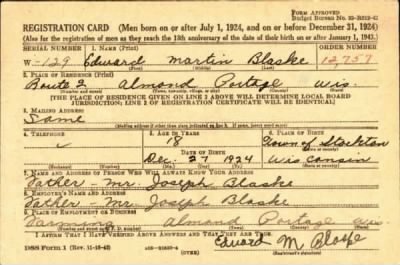 FORM APPROVED
Budget Bureau No. 33-R012-42
REGISTRATION CARD (Men born on or after July 1, 1924, and on or before December 31, 1924)
(Also for the registration of men as they reach the 18th anniversary of the date of their birth on or after January 1, 1943.)
SERIAL NUMBER 1. NAME (Print) ORDER NUMBER
W-129 Edward Martin Blaske 12,757
2. PLACE OF RESIDENCE (Print)
Route 2 Almond Portage Wis.
(THE PLACE OF RESIDENCE GIVEN ON LINE 2 ABOVE WILL DETERMINE LOCAL BOARD
JURISDICTION; LINE 2 OF REGISTRATION CERTIFICATE WILL BE IDENTICAL)
3. MAILING ADDRESS
Same
(Mailing address if other than place indicated on line 2. If same, insert word same)
4. TELEPHONE 5. AGE IN YEARS 6. PLACE OF BIRTH
18 Town of Stockton
DATE OF BIRTH
Dec. 27 1924 Wisconsin
7. NAME AND ADDRESS OF PERSON WHO WILL ALWAYS KNOW YOUR ADDRESS
Father - Mr. Joseph Blaske
8. EMPLOYER'S NAME AND ADDRESS
Father - Mr. Joseph Blaske
9. PLACE OF EMPLOYMENT OR BUSINESS
Farming Almond Portage Wis.
I AFFIRM THAT I HAVE VERIFIED ABOVE ANSWERS AND THAT THEY ARE TRUE.
DSS Form 1 (Rev. 11-16-42) (OVER) Edward M Blaske